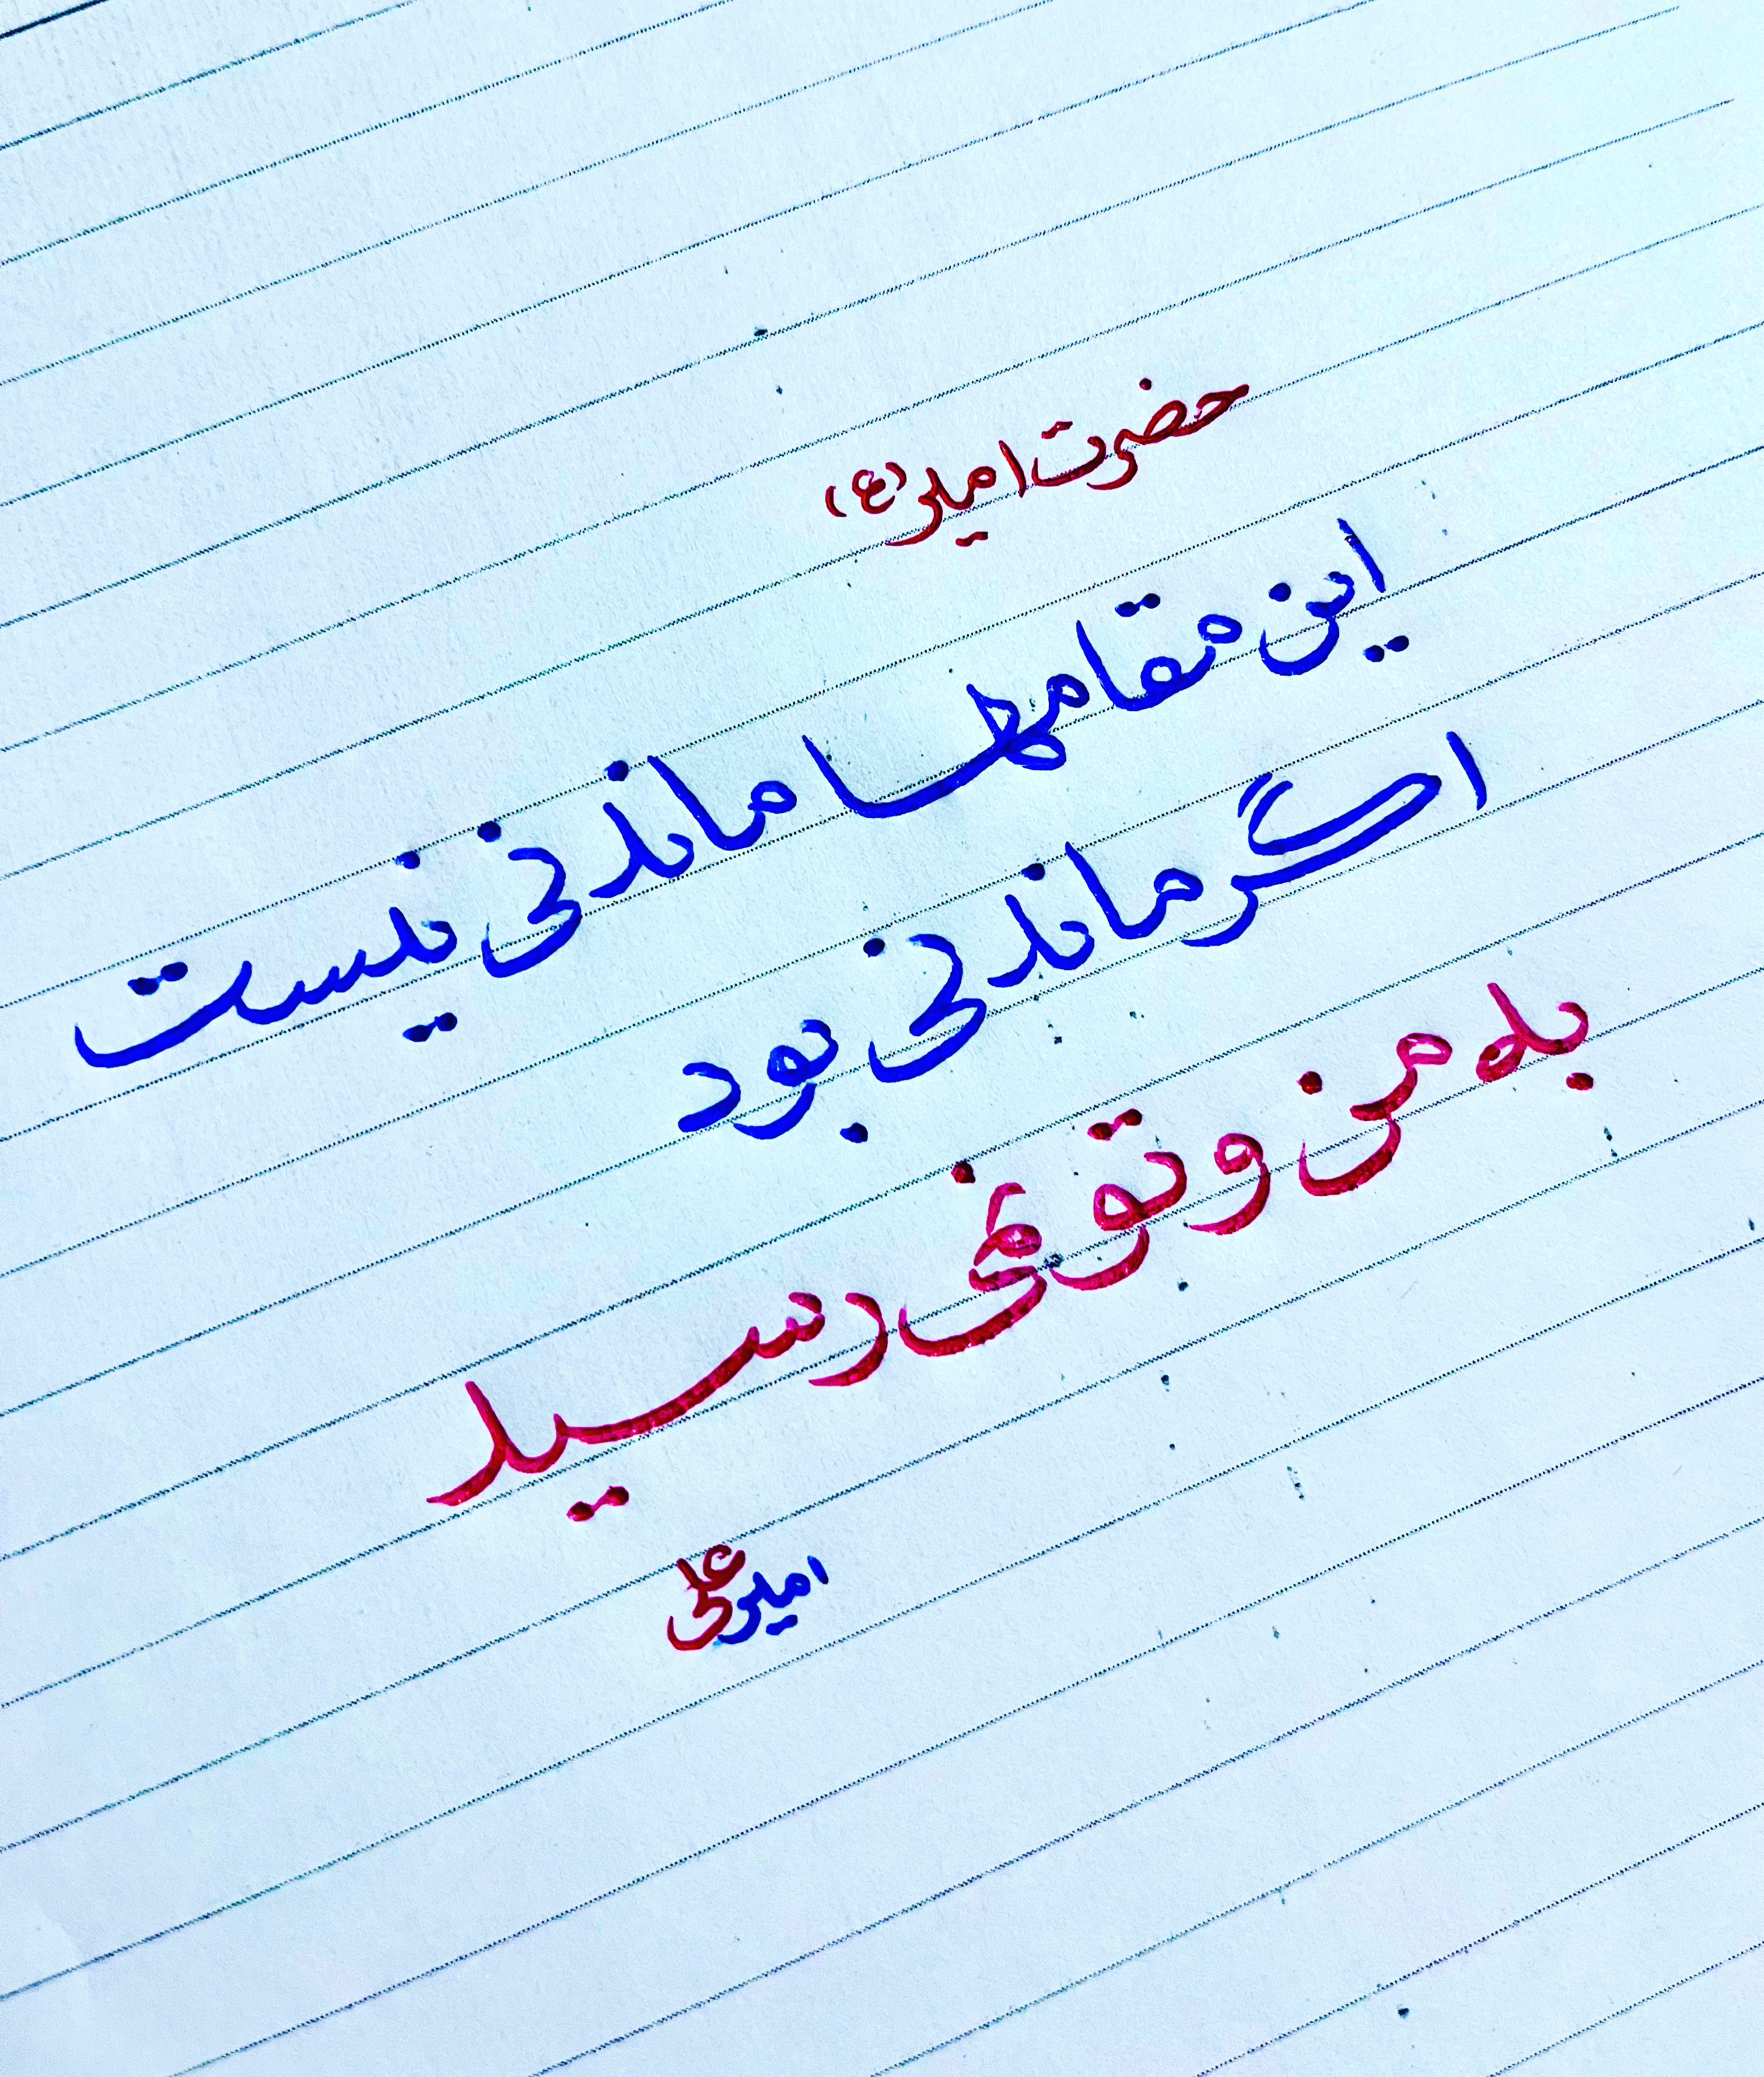 حضرت امیر (ع)
این مقامها ماندنی نیست
اگر ماندنی بود
به من و تو نمی رسید
امیرعلی